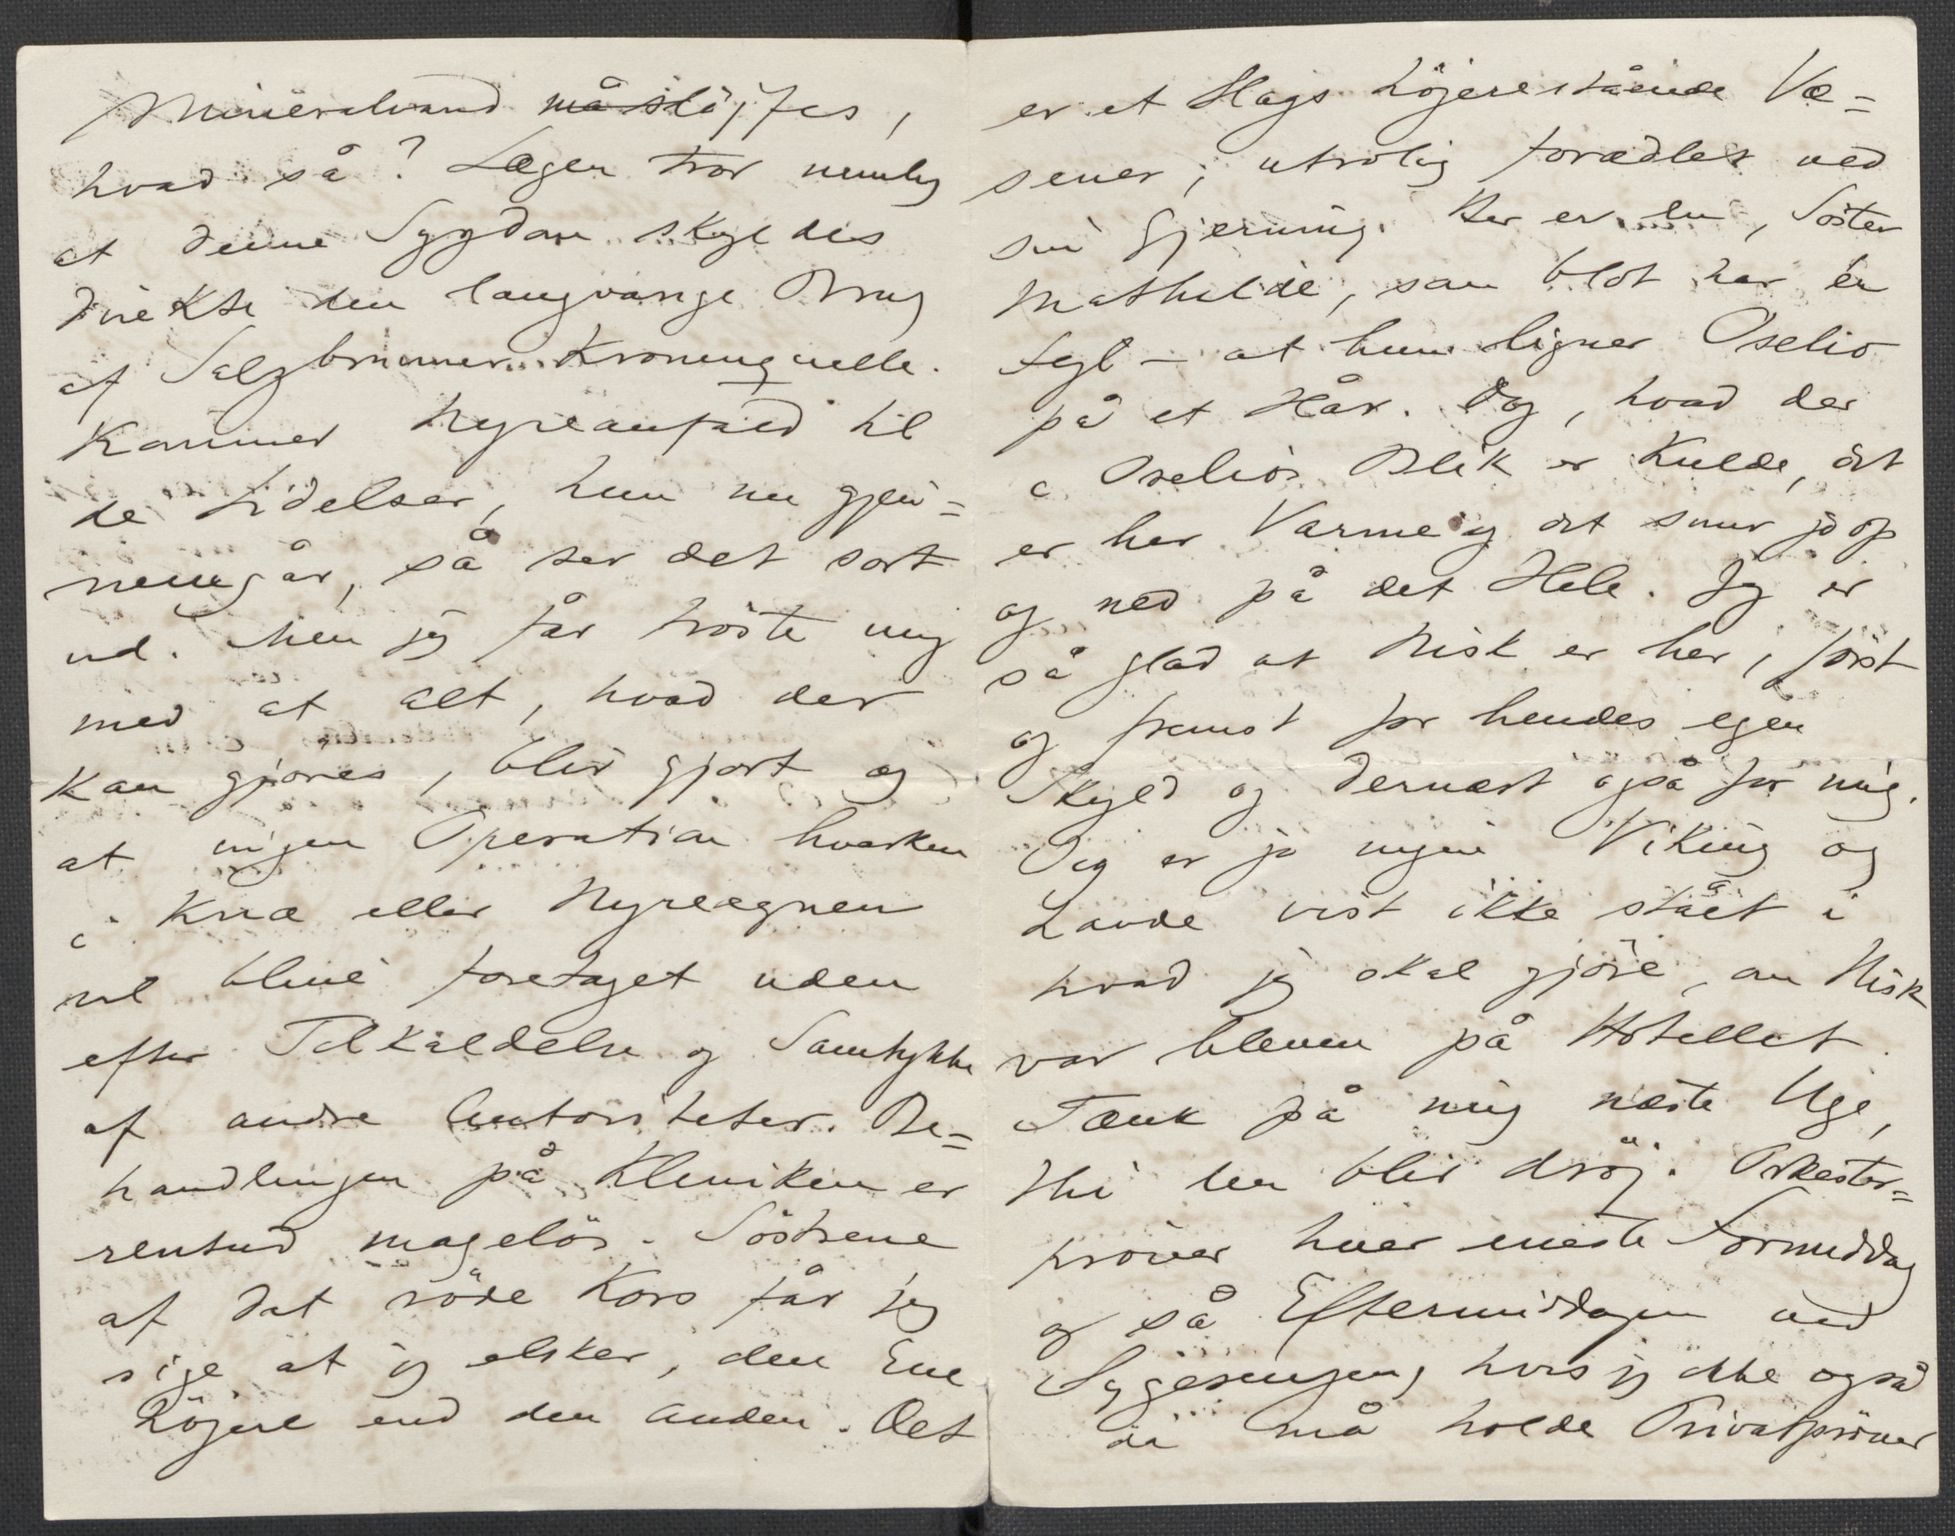 Mineralvand må slöjfes,
hvad så? Lægen tror nemlig
at denne Sygdom skyldes
direkte den langvarige Brug
af Salzbrunner Kronenquelle.
Kommer Nyreanfald til
de Lidelser, hun nu gjen=
nemgår, så ser det sort
ud. Men jeg får tröste mig
med at alt, hvad der
kan gjøres, blir gjort og
at ingen Operation hverken
i Knæ eller Nyreegnen
vil blive foretaget uden
efter Tilkaldelse og Samtykke
af andre Autoriteter. Be=
handlingen på Kliniken er
rentud magelös. Söstrene
af det röde Kors får jeg
sige at jeg elsker, den Ene
höjere end den anden. Det
er et Slags höjerestående Væ=
sener, utrolig forædlet ved
sin Gjerning. Her er en, Söster
Mathilde, som blot har én
Fejl – at hun ligner Oselio
på et Hår. Dog, hvad der
i Oselios Blik er Kulde, det
er her Varme og det snur jo op
og ned på det Hele. Jeg er
så glad at Nisk er her, först
og fremst for hendes egen
Skyld og dernæst også for mig.
Jeg er jo ingen Viking og
havde vist ikke stået i
hvad jeg skal gjöre, om Nisk
var bleven på Hotellet.
Tænk på mig næste Uge,
thi den blir dröj. Orkester=
pröver hver eneste Formiddag
og så Eftermiddagen ved
Sygesengen, hvis jeg ikke også
da må holde Privatpröver